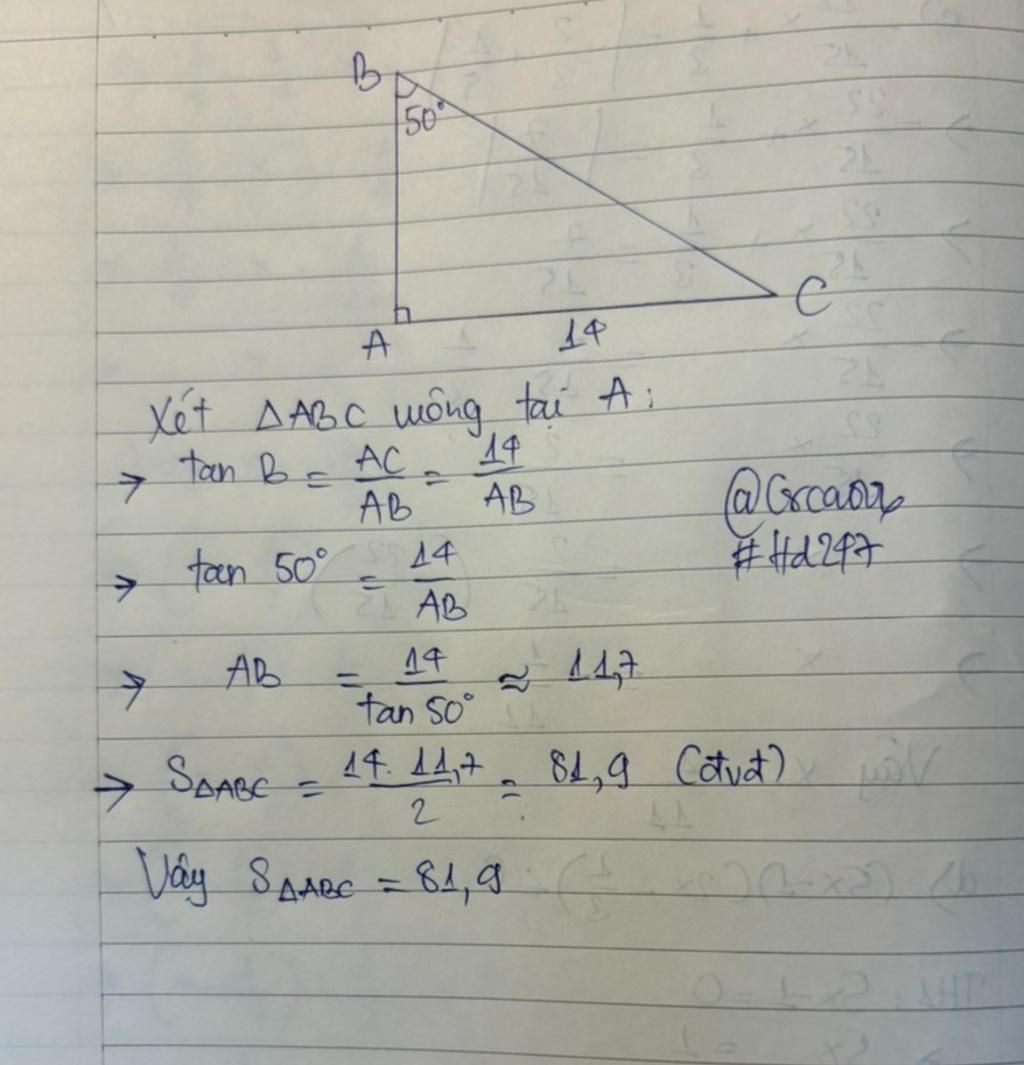 B
50°
A
14
C
Xét ΔABC vuông tại A:
→ tan B = AC/AB = 14/AB
→ tan 50° = 14/AB
→ AB = 14/tan 50° ≈ 11,7
→ SΔABC = 14. 11,7/2 = 81,9 (đvdt)
Vậy SΔABC = 81,9